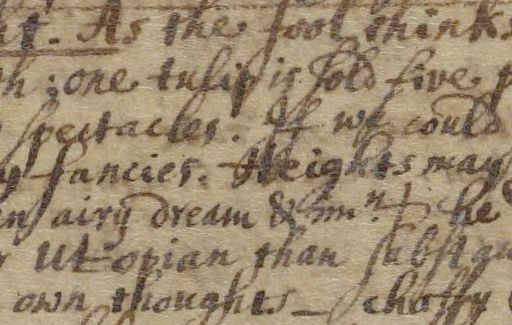 As the fool thinks
; one tulip is sold five
spectacles. If we could
fancies. Heights may
airy dream &
Utopian than
own thoughts _ chaffy